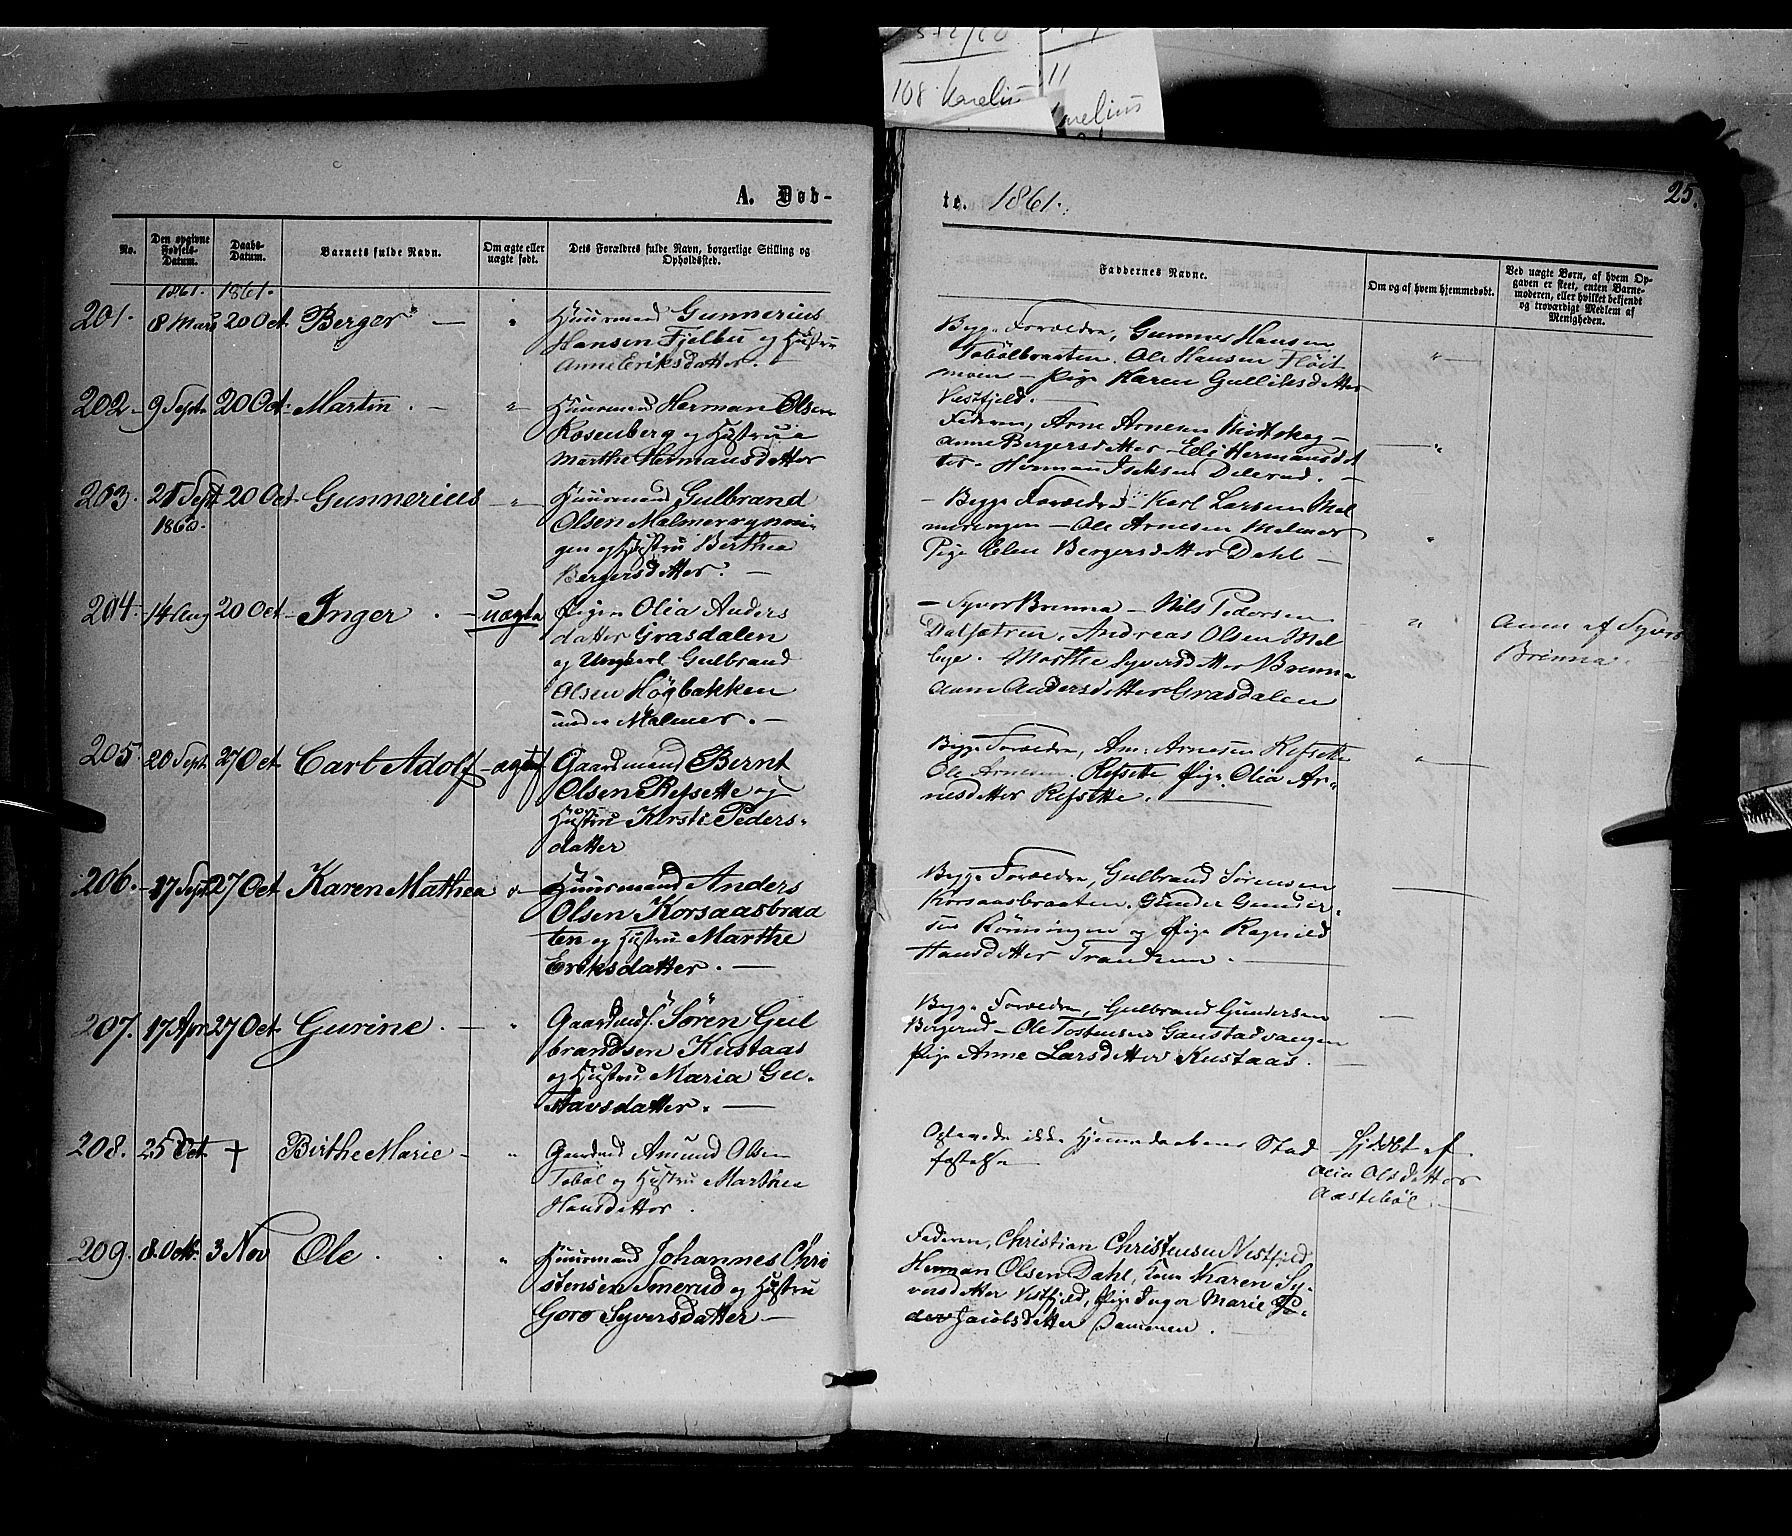 108 Karelius
11
A. Døb-
te. 1861.
25.
No.
Den opgivne Fødsels-Datum.
Daabs-Datum.
Barnets fulde Navn.
Om ægte eller uægte født.
Dets Forældres fulde Navn, borgerlige Stilling og Opholdssted.
Faddernes Navne.
Om og af hvem hjemmedøbt.
Ved uægte Børn, af hvem Opgaven er skeet, enten Barnemoderen, eller hvilket bekjendt og troværdigt Medlem af Menigheden.
1861. 1861.
201. 8 Mars 20 Oct. Berger — "
Huusmand Gunnerius
Hansen Fjelbu og Hustru
Anne Eriksdatter. —
Begge Forældre, Gunner Hansen
Tobølbraaten. Ole Hansen Fløit
moen — Pige Karen Gulliksdatter
Vestfjeld. —
202. 9 Septr 20 Oct. Martin. — "
Huusmand Herman Olsen
Rosenberg og Hustrue
Marthe Hermansdatter
Faderen, Arne Arnesen Midtskog —
Anne Bergersdatter — Eli Hermansdat
ter. Herman
203. 21 Sept. 20 Oct. Gunnerius — "
1860.
Huusmand Gulbrand
Olsen Malmerrygnin-
gen og Hustru Berthea
Bergersdatter. —
— Begge Forældre — Karl Larsen Mal
merengen — Ole Arnesen Malmer
Pige Elen Bergersdatter Dahl —
204. 14 Aug 20 Oct. Inger. — uægte
Pigen Olia Anders
datter Grasdalen
og Ungkarl Gulbrand
Olsen Høgbakken
under Malmer. —
— Syver Brenna — Nils Pedersen
Dalsætren, Andreas Olsen Mel
bye. Marthe Syversdatter Brenna
Anne Andersdatter Grasdalen
Anm. af Syver
Brenna.
205. 20 Sept. 27 Oct. Carl Adolf — ægte
Gaardmand Bernt
Olsen Refsette og
Hustru Kersti Peders-
datter
Begge Forældre, Am: Arnesen Refsette
Ole Arnesen. Refsette Pige Olia Ar-
nesdatter Refsette. —
206. 17 Sept. 27 Oct. Karen Mathea "
Huusmand Anders
Olsen Korsaasbraa
ten og Hustru Marthe
Eriksdatter. —
Begge Forældre, Gulbrand Sørensen
Korsaasbraaten. Gunder Gunder-
sen Rønningen og Pige Ragnild
Hansdatter Trandem. —
207. 17 Apr. 27 Oct. Gurine. — "
Gaardmd. Søren Gul
brandsen Kustaas
og Hustru Maria Gu-
stavsdatter. —
Begge Forældre, Gulbrand Gundersen
Bergerud — Ole Tostensen Gaustadvangen
Pige Anne Larsdatter Kustaas.
208. 25 Oct. † Birthe Marie — "
Gaardmd Amund Olsen
Tobøl og Hustru Marthea
Hansdatter.
ikke Hjemmedaabens Stad
fæstelse
Hj:døbt af
Olia Olsdatter
Aastebøl
209. 8. Octb. 3 Nov Ole. "
Huusmand Johannes Chri
stensen Smerud og Hustru
Goro Syversdatter —
Faderen, Christian Christensen Vestfjeld
Herman Olsen Dahl, Kone Karen Sy-
versdatter Vestfjeld, Pige Inger Marie
Jacobsdatter Dammen.